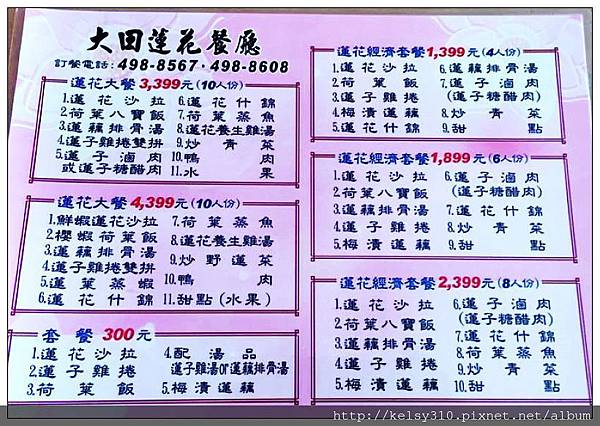 大田蓮花餐廳
訂餐電話:498-8567·498-8608
蓮花大餐3,399元(10人份)
1.蓮花沙拉
2.荷葉八寶飯
3.蓮藕排骨湯
4.蓮子雞捲雙拼
5.蓮子滷肉
或蓮子糖醋肉
6.蓮花什錦
7.荷葉蒸魚
8.蓮花養生雞湯
9.炒青菜
10.鴨肉
11.水果
蓮花大餐4,399元(10人份)
1.鮮蝦蓮花沙拉
2.櫻蝦荷葉飯
3.蓮藕排骨湯
4.蓮子雞捲雙拼
5.蓮葉蒸蝦
6.蓮花什錦
7.荷葉蒸魚
8.蓮花養生雞湯
9.炒野蓮菜
10.鴨肉
11.甜點(水果)
套餐300元
1.蓮花沙拉
2.蓮子雞捲
3.荷葉飯
4.配湯品
蓮子雞湯or蓮藕排骨湯
5.梅漬蓮藕
蓮花經濟套餐1,399元(4人份)
1.蓮花沙拉
2.荷葉飯
3.蓮子雞捲
4.梅漬蓮藕
5.蓮花什錦
6.蓮藕排骨湯
7.蓮子滷肉
(蓮子糖醋肉)
8.炒青菜
9.甜點
蓮花經濟套餐1,899元(6人份)
1.蓮花沙拉
2.荷葉八寶飯
3.蓮藕排骨湯
4.蓮子雞捲
5.梅漬蓮藕
6.蓮子滷肉
(蓮子糖醋肉)
7.蓮花什錦
8.炒青菜
9.甜點
蓮花經濟套餐2,399元(8人份)
1.蓮花沙拉
2.荷葉八寶飯
3.蓮藕排骨湯
4.蓮子雞捲
5.梅漬蓮藕
6.蓮子滷肉
(蓮子糖醋肉)
7.蓮花什錦
8.荷葉蒸魚
9.炒青菜
10.甜點
http://kelsy310.pixnet.net/album